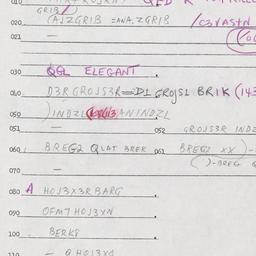 GRIB/
020 (AJZGRIB =ANA, ZGRIB /C3VASTN
021 —
030 QGL ELEGANT .
040 D3RGROJS3R=D1 GROJSL BRIK (143
050 )INDZL ANINDZL
051 — 052 GROJS3R INDZ
060 BREG2 QLAT BREK 061 BREG2 XX )-
( )-BREG
070 —
080 A HOJ3X3RBARG
090 OFM7 HOJ3XN .
100 BERK8 .
110 — Q HOJ3X4